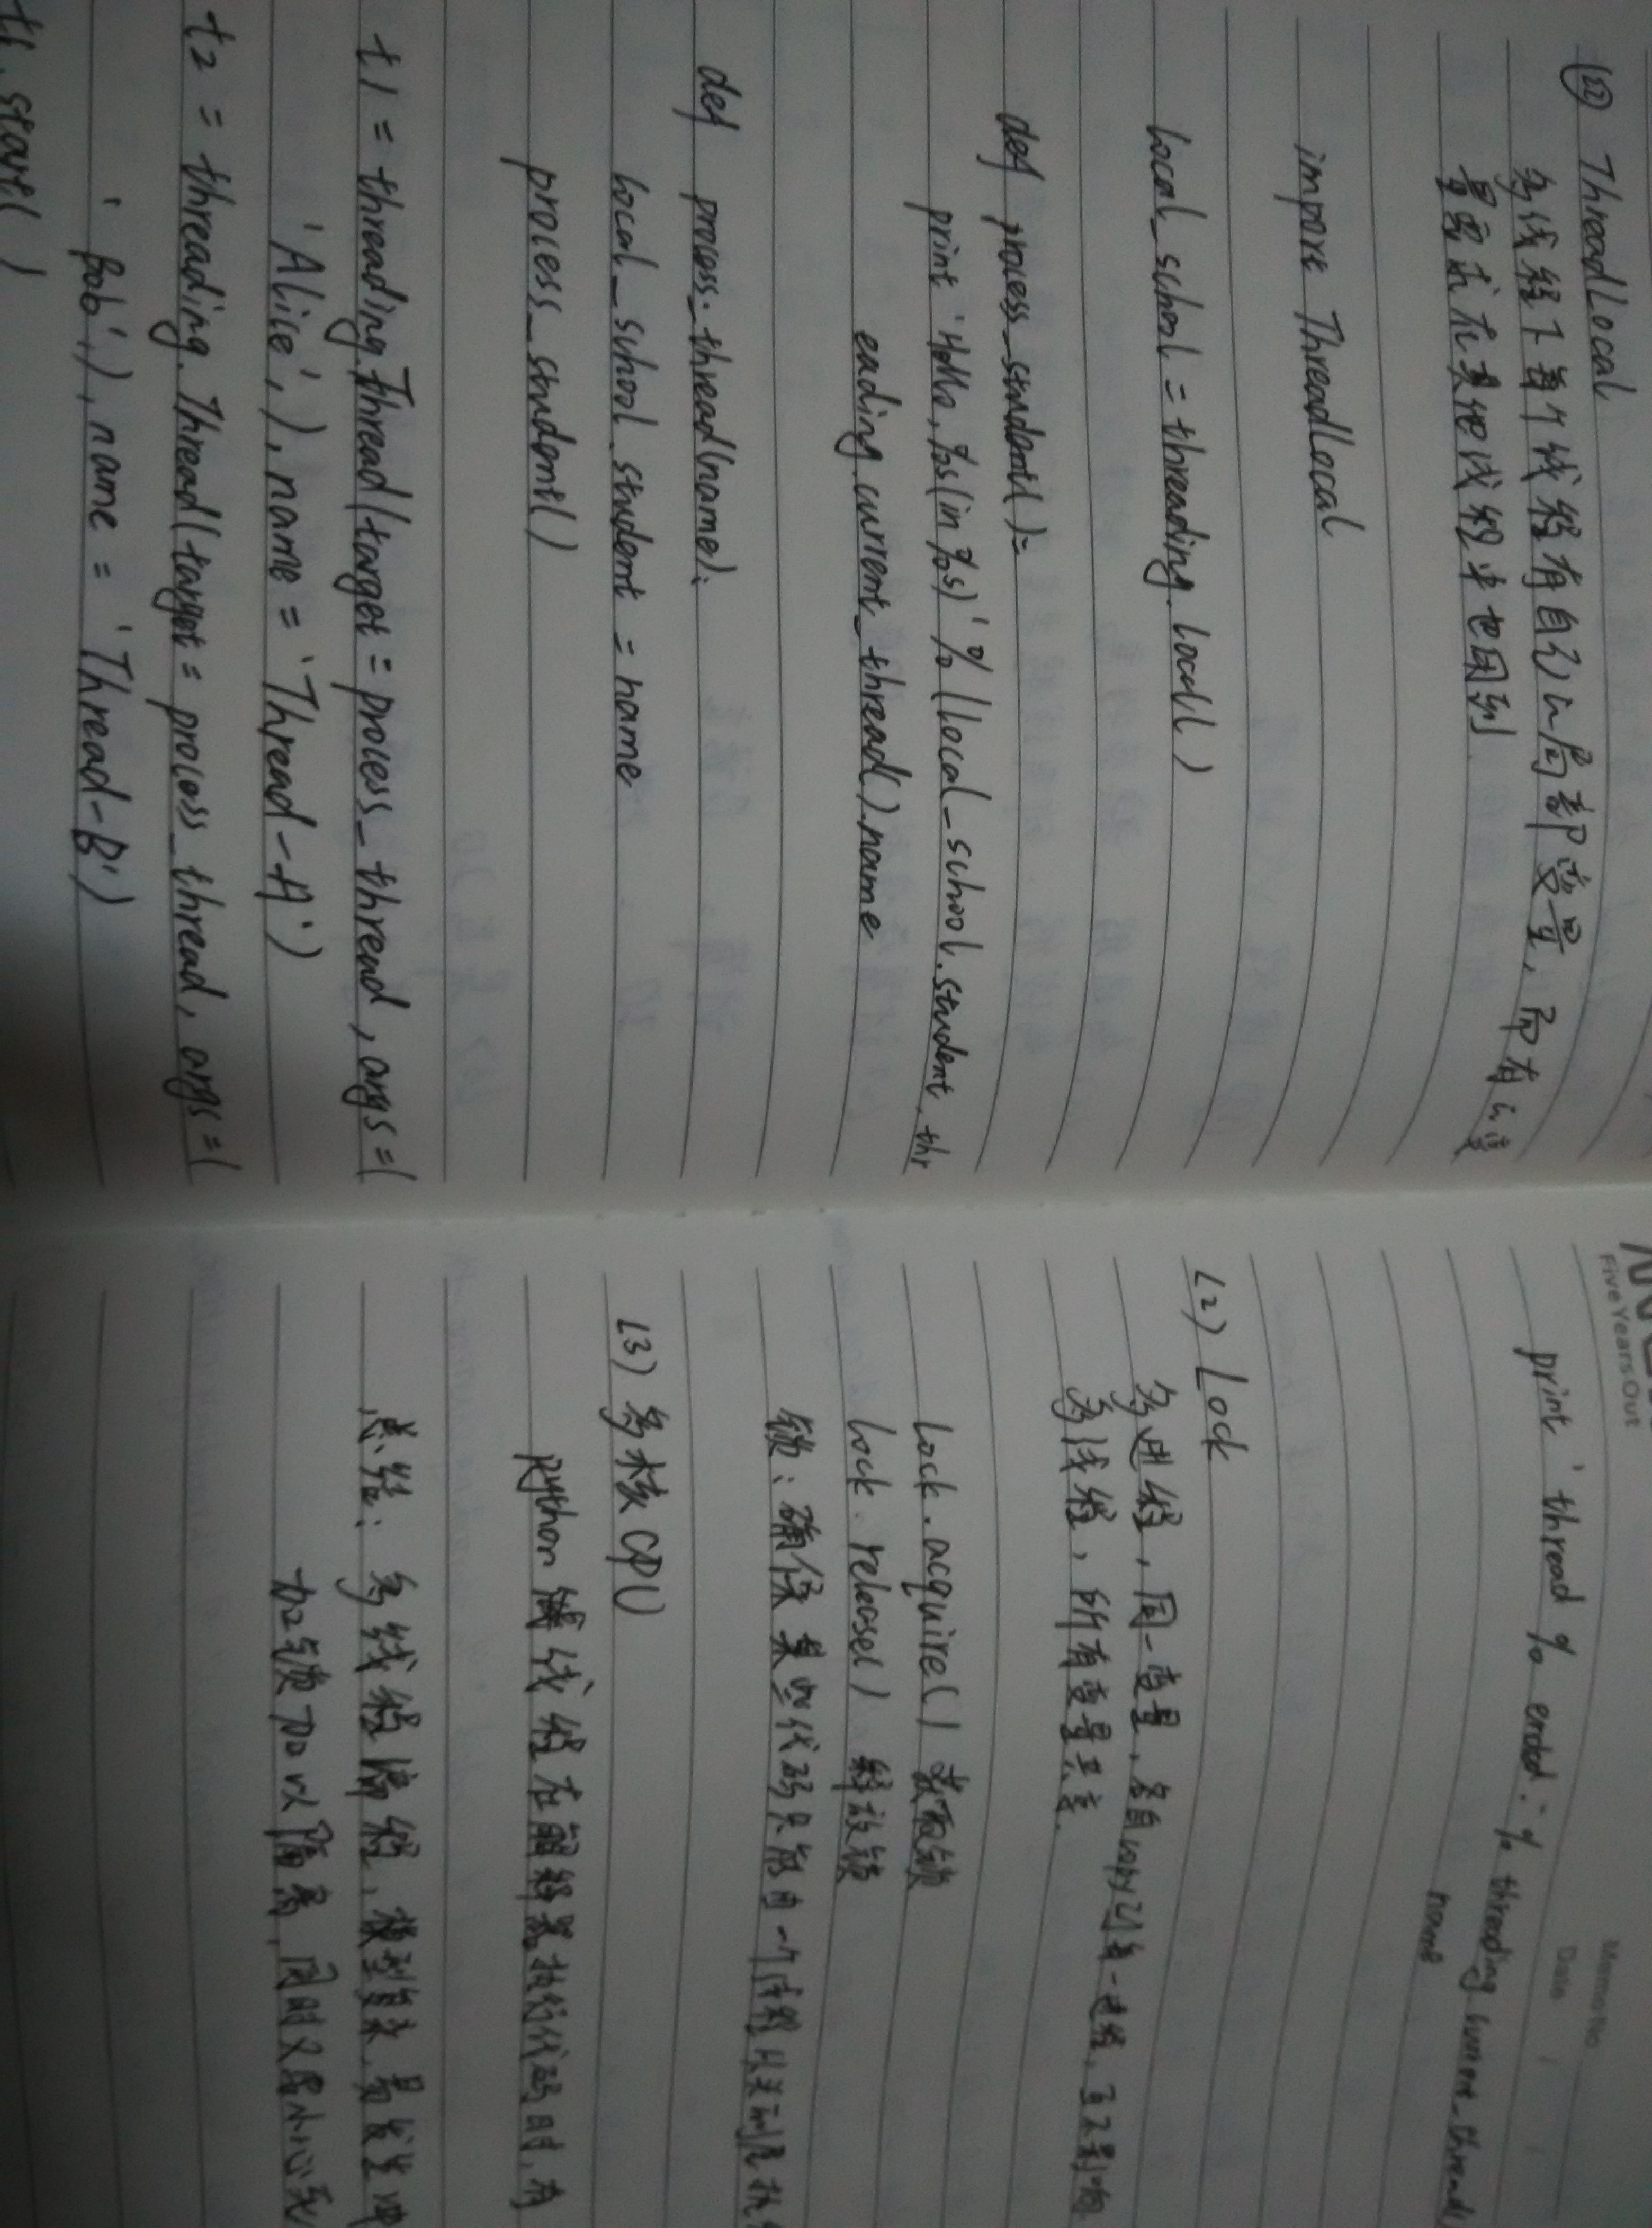 ㉒ ThreadLocal
多线程下每个线程有自己的局部变量，而有的变
量需求在其他线程中也用到
import ThreadLocal
local_school = threading.local()
def process_student():
print 'Hello, %s(in %s)' % (local_school.student, thr
eading.current_thread().name
def process_thread(name):
local_school.student = name
process_student()
t1 = threading.Thread(target = process_thread, args=(
'Alice',), name = 'Thread-A')
t2 = threading.Thread(target = process_thread, args=(
'Bob',), name = 'Thread-B')
t1.start()
Five Years Out
Memo No.
Date / /
print 'thread % ended.' % threading.current_thread
name
(2) Lock
多进程，同一变量，各自copy 一 进程，互不影响
多线程，所有变量共享.
lock.acquire() 获取锁
lock.release() 释放锁
锁：确保某些代码只能由一个线程从头到尾执
(3) 多核CPU
Python 线程在解释器执行代码时，有
总结：多线程编程，模型复杂，易发生冲
加锁加以隔离，同时又要小心死